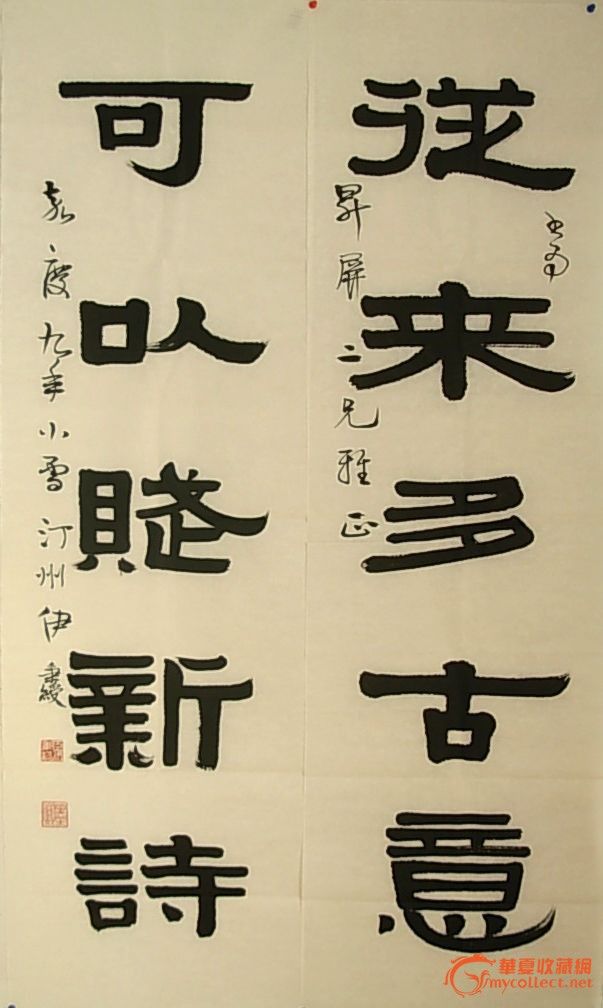 從来多古意
書為
昇屏二兄雅正
可以賦新詩
嘉慶九年小雪汀州伊秉綬
華夏收藏網
mycollect.net